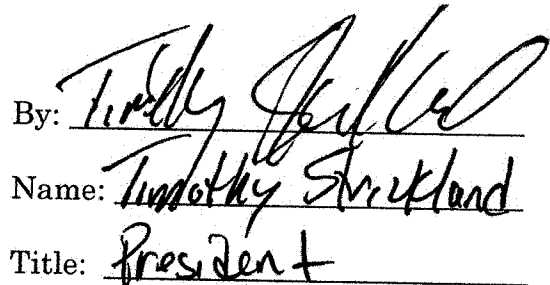 By: Timothy Strickland
Name: Timothy Strickland
Title: President